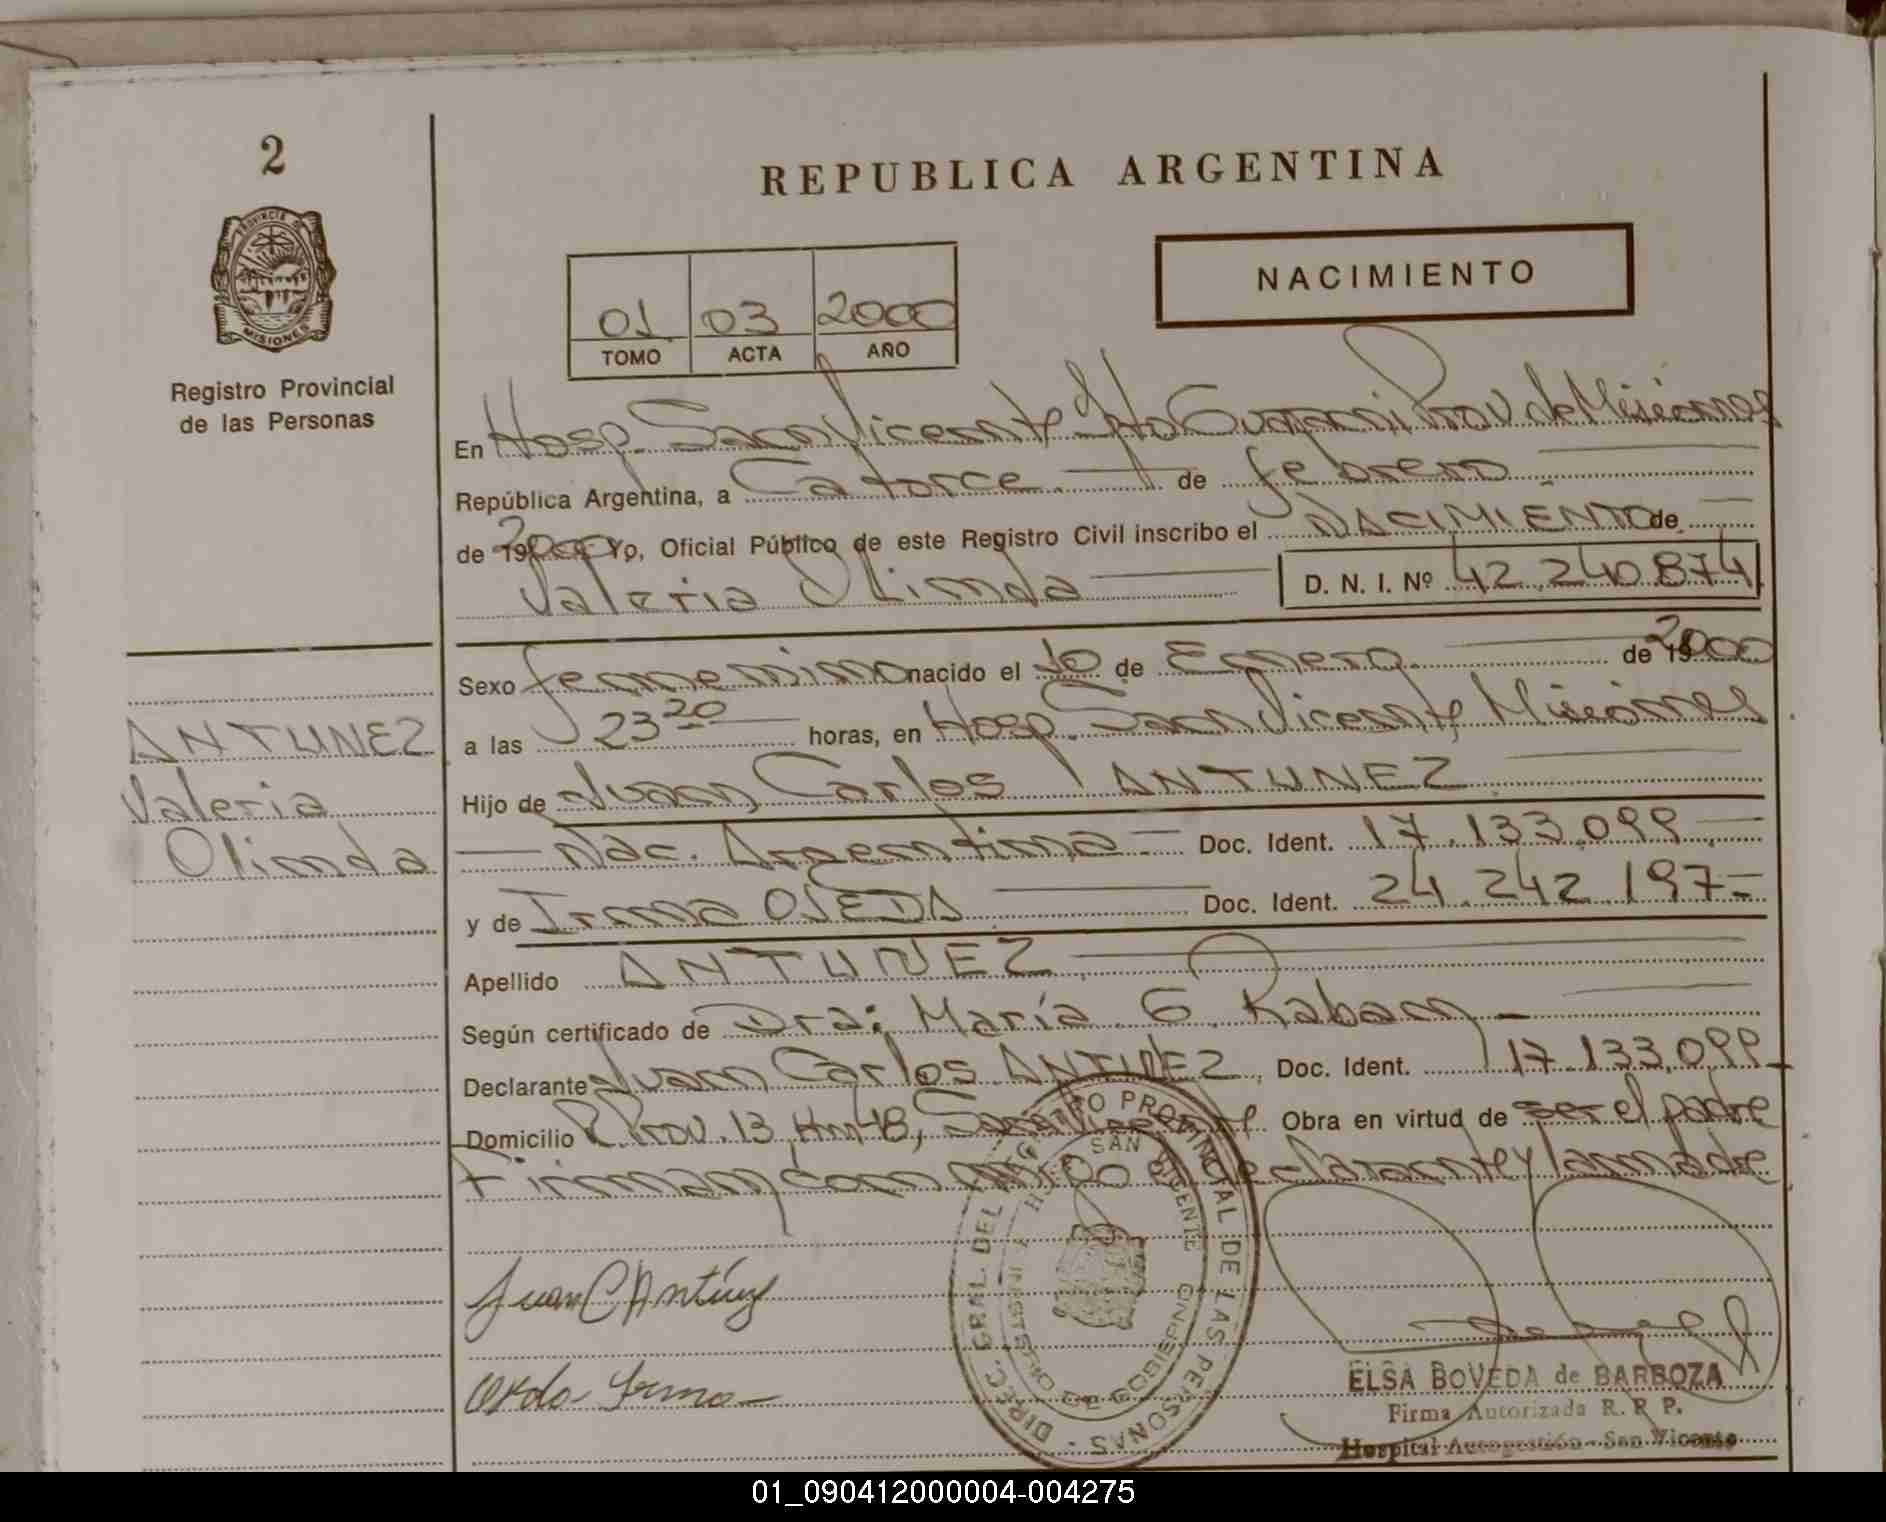 2
REPUBLICA ARGENTINA
PROVINCIA DE
MISIONES
Registro Provincial
de las Personas
NACIMIENTO
01 03 2000
TOMO ACTA AÑO
En Hosp. San Vicente Dpto Guaraní Prov. de Misiones
República Argentina, a Catorce de febrero
de 19 2000 Yo, Oficial Público de este Registro Civil inscribo el NACIMIENTO de
Valeria Olinda D. N. I. Nº 42.240.874
ANTUNEZ
Valeria
Olinda
Sexo femenino nacido el 10 de Enero de 19 2000
a las 23 20 horas, en Hosp. San Vicente Misiones
Hijo de Juan Carlos ANTUNEZ
Nac. Argentina Doc. Ident. 17.133.099
y de Irma OJEDA Doc. Ident. 24.242.197
Apellido ANTUNEZ
Según certificado de Dra: María G. Raban
Declarante Juan Carlos ANTUNEZ, Doc. Ident. 17.133.099
Domicilio R. Prov. 13 Km 48, San Vicente Obra en virtud de ser el padre
Firman conmigo el declarante y la madre
Juan C Antúnez
Irma
DIREC. GRAL. DEL REGISTRO PROVINCIAL DE LAS PERSONAS
SAN VICENTE
ELSA BOVEDA de BARBOZA
Firma Autorizada R. P. P.
Hospital Autogestión - San Vicente
01_090412000004-004275